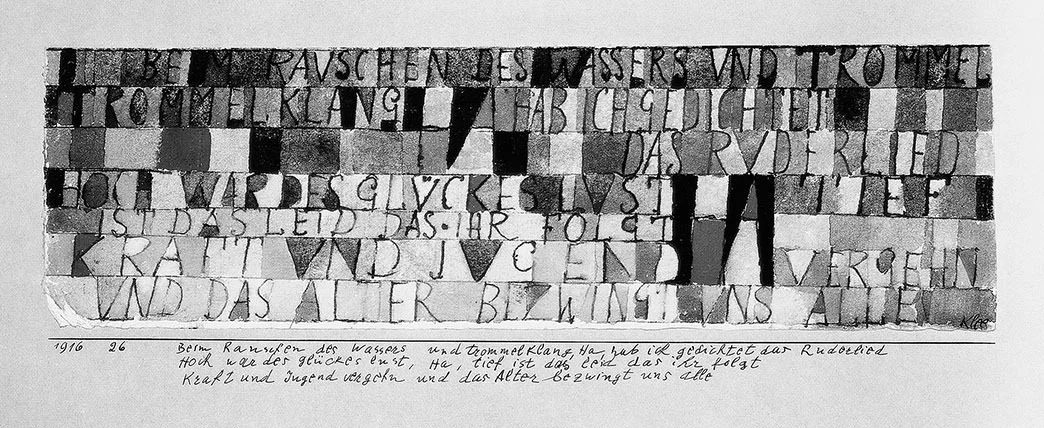 BEIM RAVSCHEN DES WASSERS VND TROMMEL
TROMMELKLANG HA HAB ICH GEDICHTET
DAS RVDERLIED
HOCH WAR DES GLÜCKES LVST HA TIEF
IST DAS LEID DAS·IHR FOLGT
KRAFT VND JVGEND VERGEHN
VND DAS ALTER BEZWINGT VNS ALLE
Klee
1916 26 Beim Rauschen des Wassers und Trommelklang, Ha, hab ich gedichtet das Ruderlied
Hoch war des glückes lust, Ha, tief ist das leid das ihr folgt
Kraft und Jugend vergehn und das Alter bezwingt uns alle